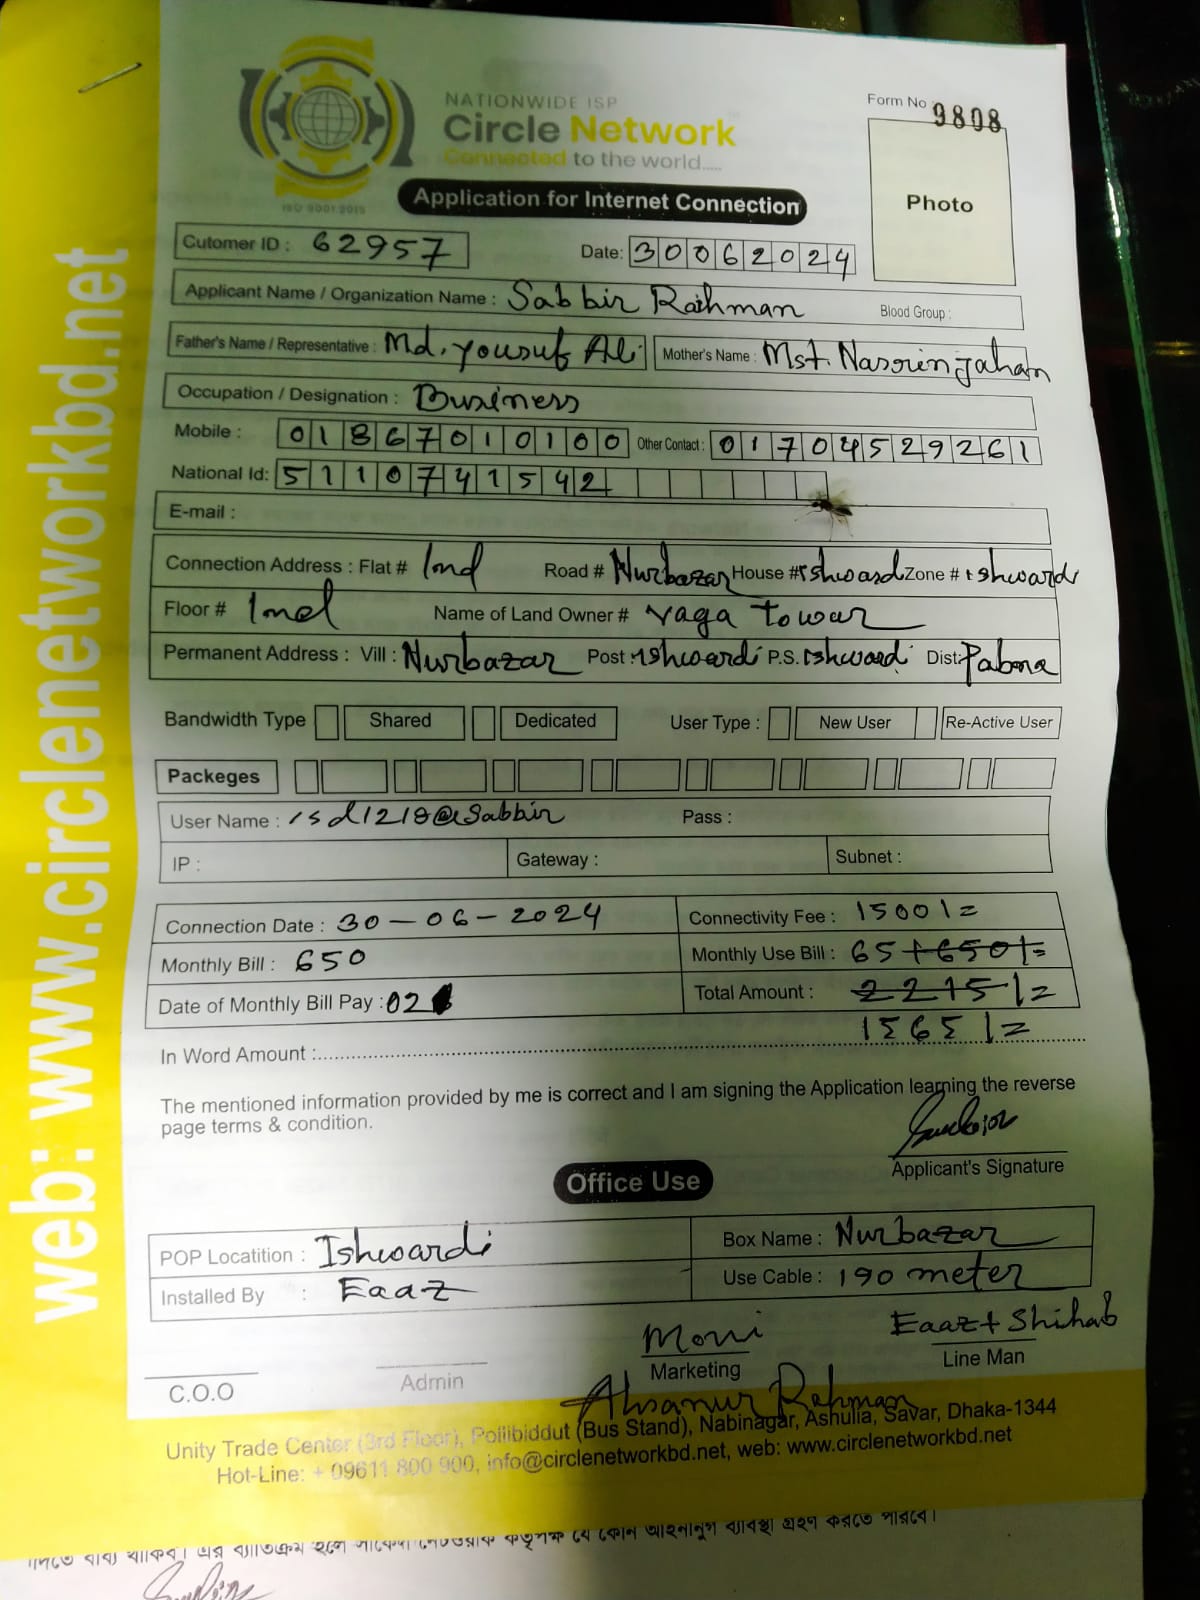 NATIONWIDE ISP
Circle Network
Connected to the world.....
ISO 9001:2015
Form No : 9808
Photo
Application for Internet Connection
Cutomer ID : 62957 Date: 30062024
Applicant Name / Organization Name : Sabbir Rahman Blood Group :
Father's Name / Representative : Md. Yousuf Ali Mother's Name : Mst. Nasrin Jahan
Occupation / Designation : Business
Mobile : 01867010100 Other Contact : 01704529261
National Id: 5110741542
E-mail :
Connection Address : Flat # 2nd Road # Nurbazar House # Ishwardi Zone # Ishwardi
Floor # 2nd Name of Land Owner # towar
Permanent Address : Vill : Nurbazar Post : Ishwardi P.S. Ishwardi Dist: Pabna
Bandwidth Type Shared Dedicated User Type : New User Re-Active User
Packeges
User Name : isd1218@sabbir Pass :
IP : Gateway : Subnet :
Connection Date : 30-06-2024 Connectivity Fee : 1500/=
Monthly Bill : 650 Monthly Use Bill : 65+650/=
Date of Monthly Bill Pay : 02 Total Amount : 2215/=
1565/=
In Word Amount :
The mentioned information provided by me is correct and I am signing the Application learning the reverse
page terms & condition.
Applicant's Signature
Office Use
POP Locatition : Ishwardi Box Name : Nurbazar
Installed By : Eaaz Use Cable : 190 meter
Moni Eaaz + Shihab
C.O.O Admin Marketing Line Man
Ahsanur Rahman
Unity Trade Center (3rd Floor), Pollibiddut (Bus Stand), Nabinagar, Ashulia, Savar, Dhaka-1344
Hot-Line: + 09611 800 900, info@circlenetworkbd.net, web: www.circlenetworkbd.net
web: www.circlenetworkbd.net
কর্তৃপক্ষ যে কোন আইনানুগ ব্যবস্থা গ্রহণ করতে পারবে।